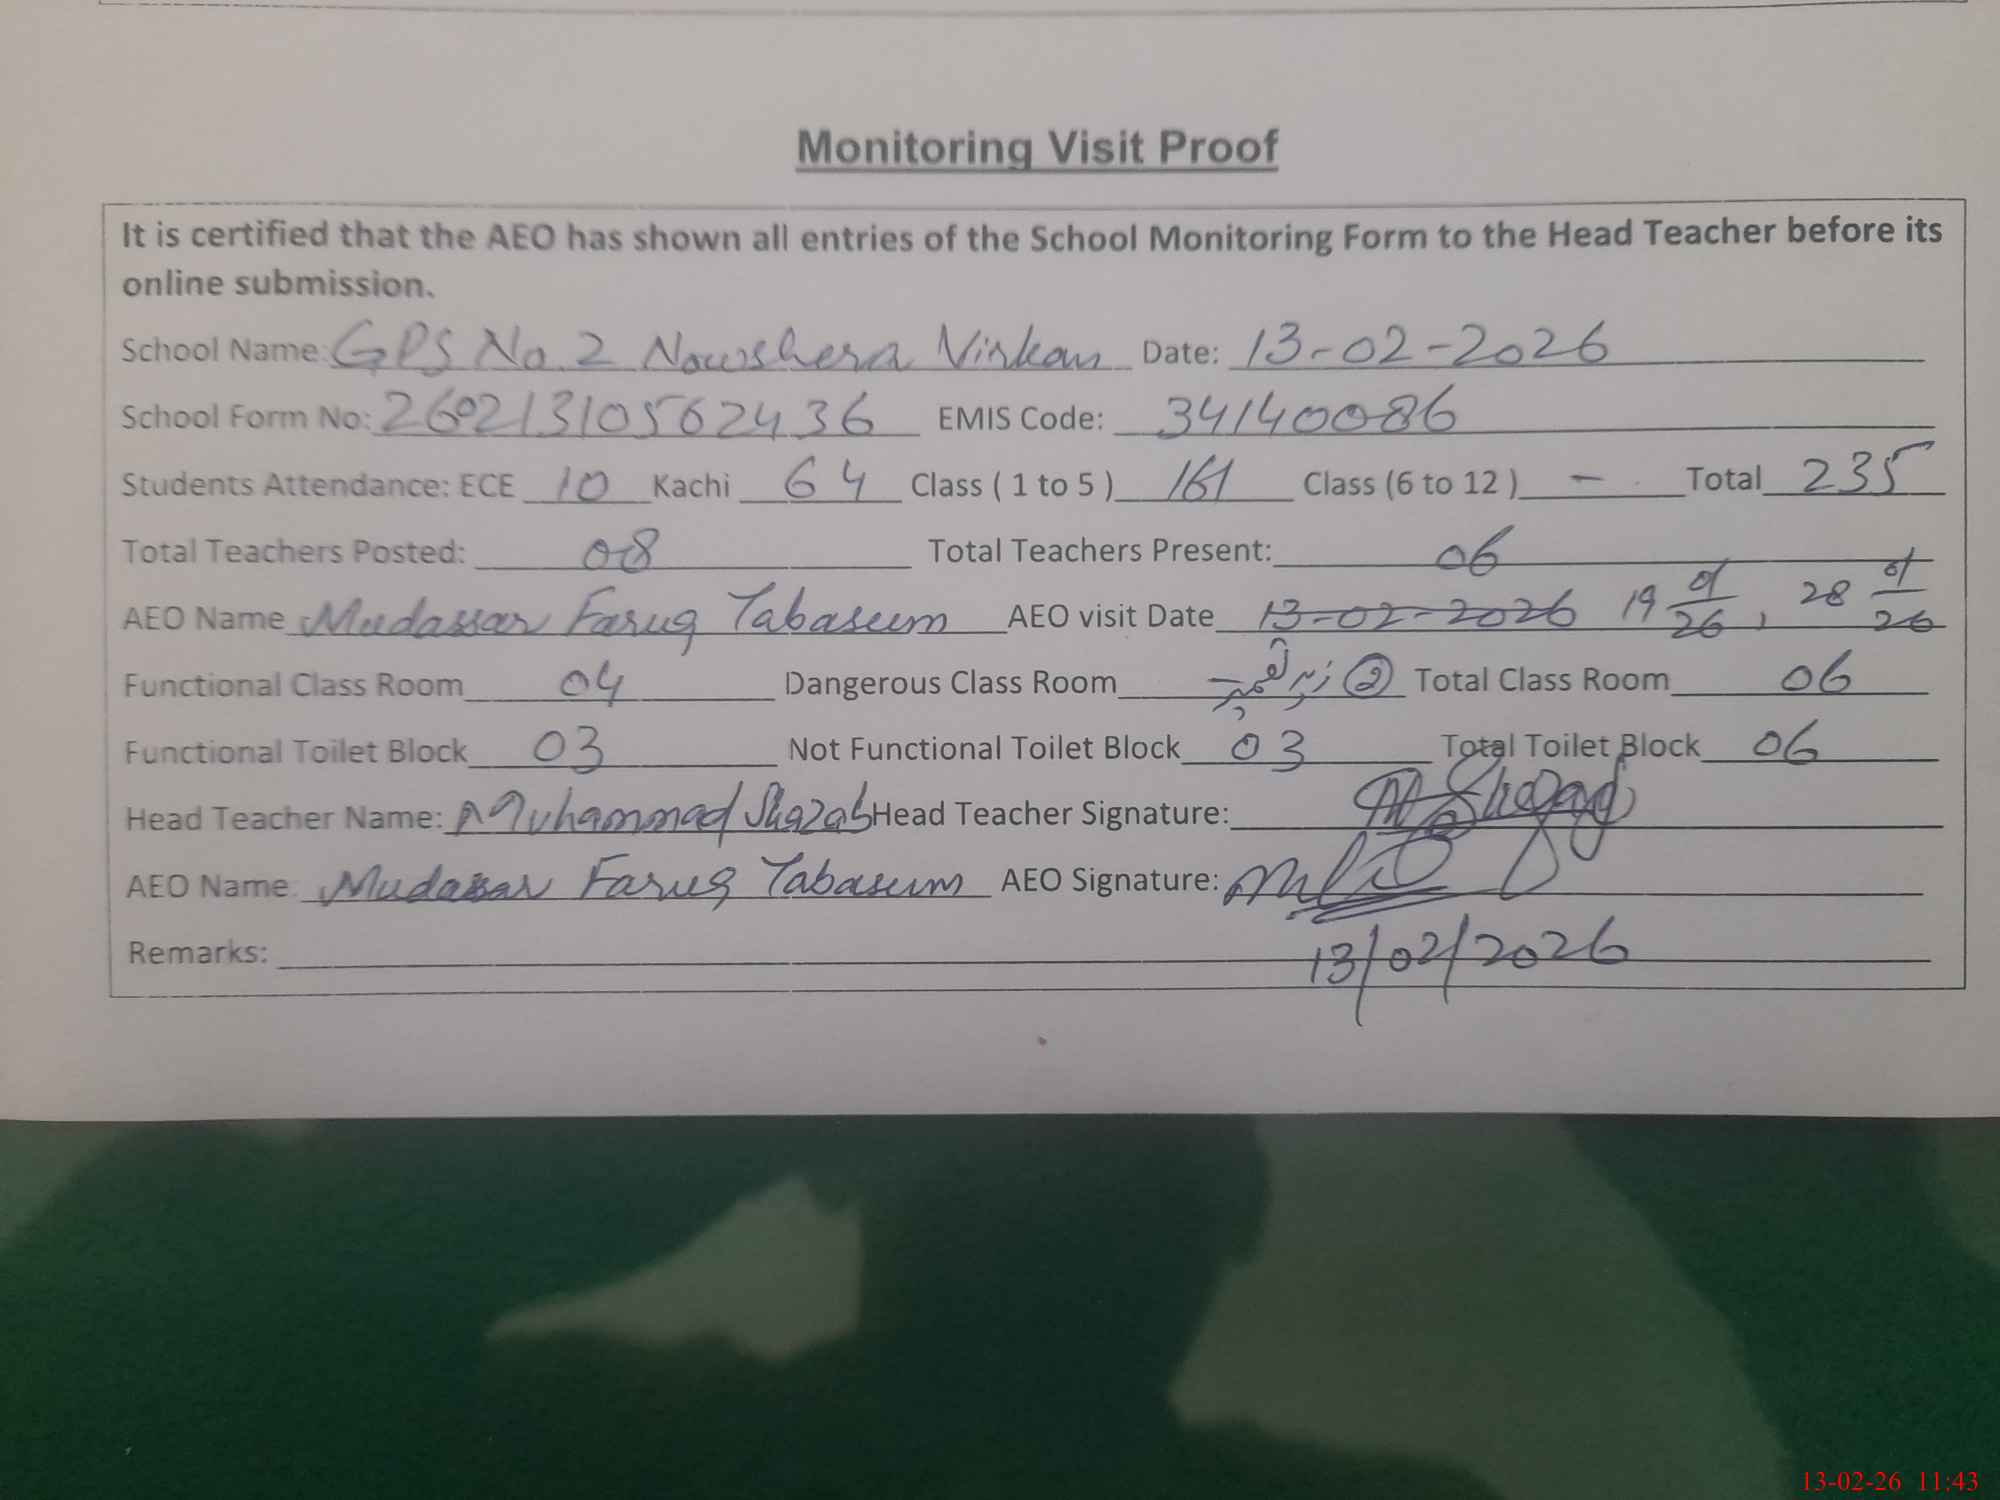 Monitoring Visit Proof
It is certified that the AEO has shown all entries of the School Monitoring Form to the Head Teacher before its
online submission.
School Name: GPS No. 2 Nowshera Virkan Date: 13-02-2026
School Form No: 26021310562436 EMIS Code: 34140086
Students Attendance: ECE 10 Kachi 64 Class ( 1 to 5 ) 161 Class (6 to 12 ) - Total 235
Total Teachers Posted: 08 Total Teachers Present: 06
AEO Name Mudassar Faruq Tabasum AEO visit Date 13-02-2026 19 01/26, 28 01/26
Functional Class Room 04 Dangerous Class Room - زیر تعمیر 2 Total Class Room 06
Functional Toilet Block 03 Not Functional Toilet Block 03 Total Toilet Block 06
Head Teacher Name: Muhammad Shazab Head Teacher Signature:
AEO Name: Mudassar Faruq Tabasum AEO Signature:
Remarks: 13/02/2026
13-02-26 11:43